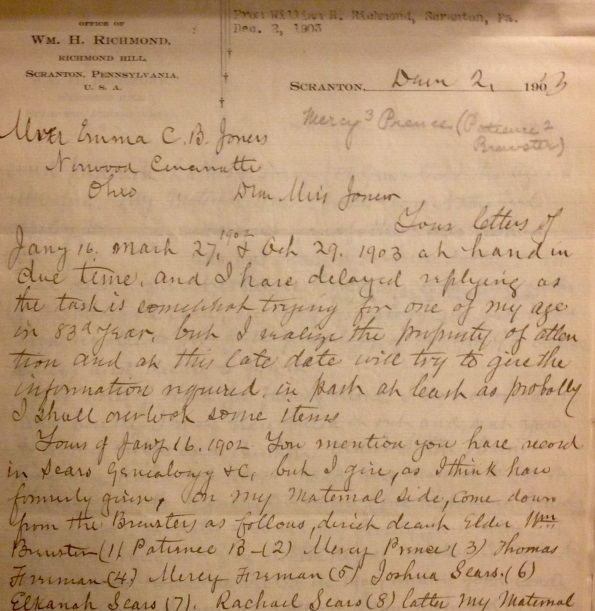 OFFICE OF
WM. H. RICHMOND,
RICHMOND HILL,
SCRANTON, PENNSYLVANIA.
U. S. A.
From: William H. Richmond, Scranton, Pa.
Dec. 2, 1903
SCRANTON, Decm 2, 1903
Mercy 3 Prence (Patience 2
Brewster)
Emma C. B. Jones
Norwood Cincinnatti
Ohio
Dear Miss Jones
Your letters of
Jany 16. March 27, 1902 & Oct 29. 1903 at hand in
due time, and I have delayed replying as
the task is somewhat trying for one of my age
in 83d year, but I realize the propriety of atten
tion and at this late date will try to give the
information required, in part at least as probally
I shall overlook some items
Yours of Jany 16. 1902 You mention you have record
in Sears Genealogy &C, but I give, as I think have
formerly given, on my Maternal side, come down
from the Brewsters as follows, direct Elder Wm
Brewster (1) Patience B- (2) Mercy Prence (3) Thomas
Freeman (4) Mercy Freeman (5) Joshua Sears. (6)
Elkanah Sears (7). Rachael Sears (8) latter my Maternal